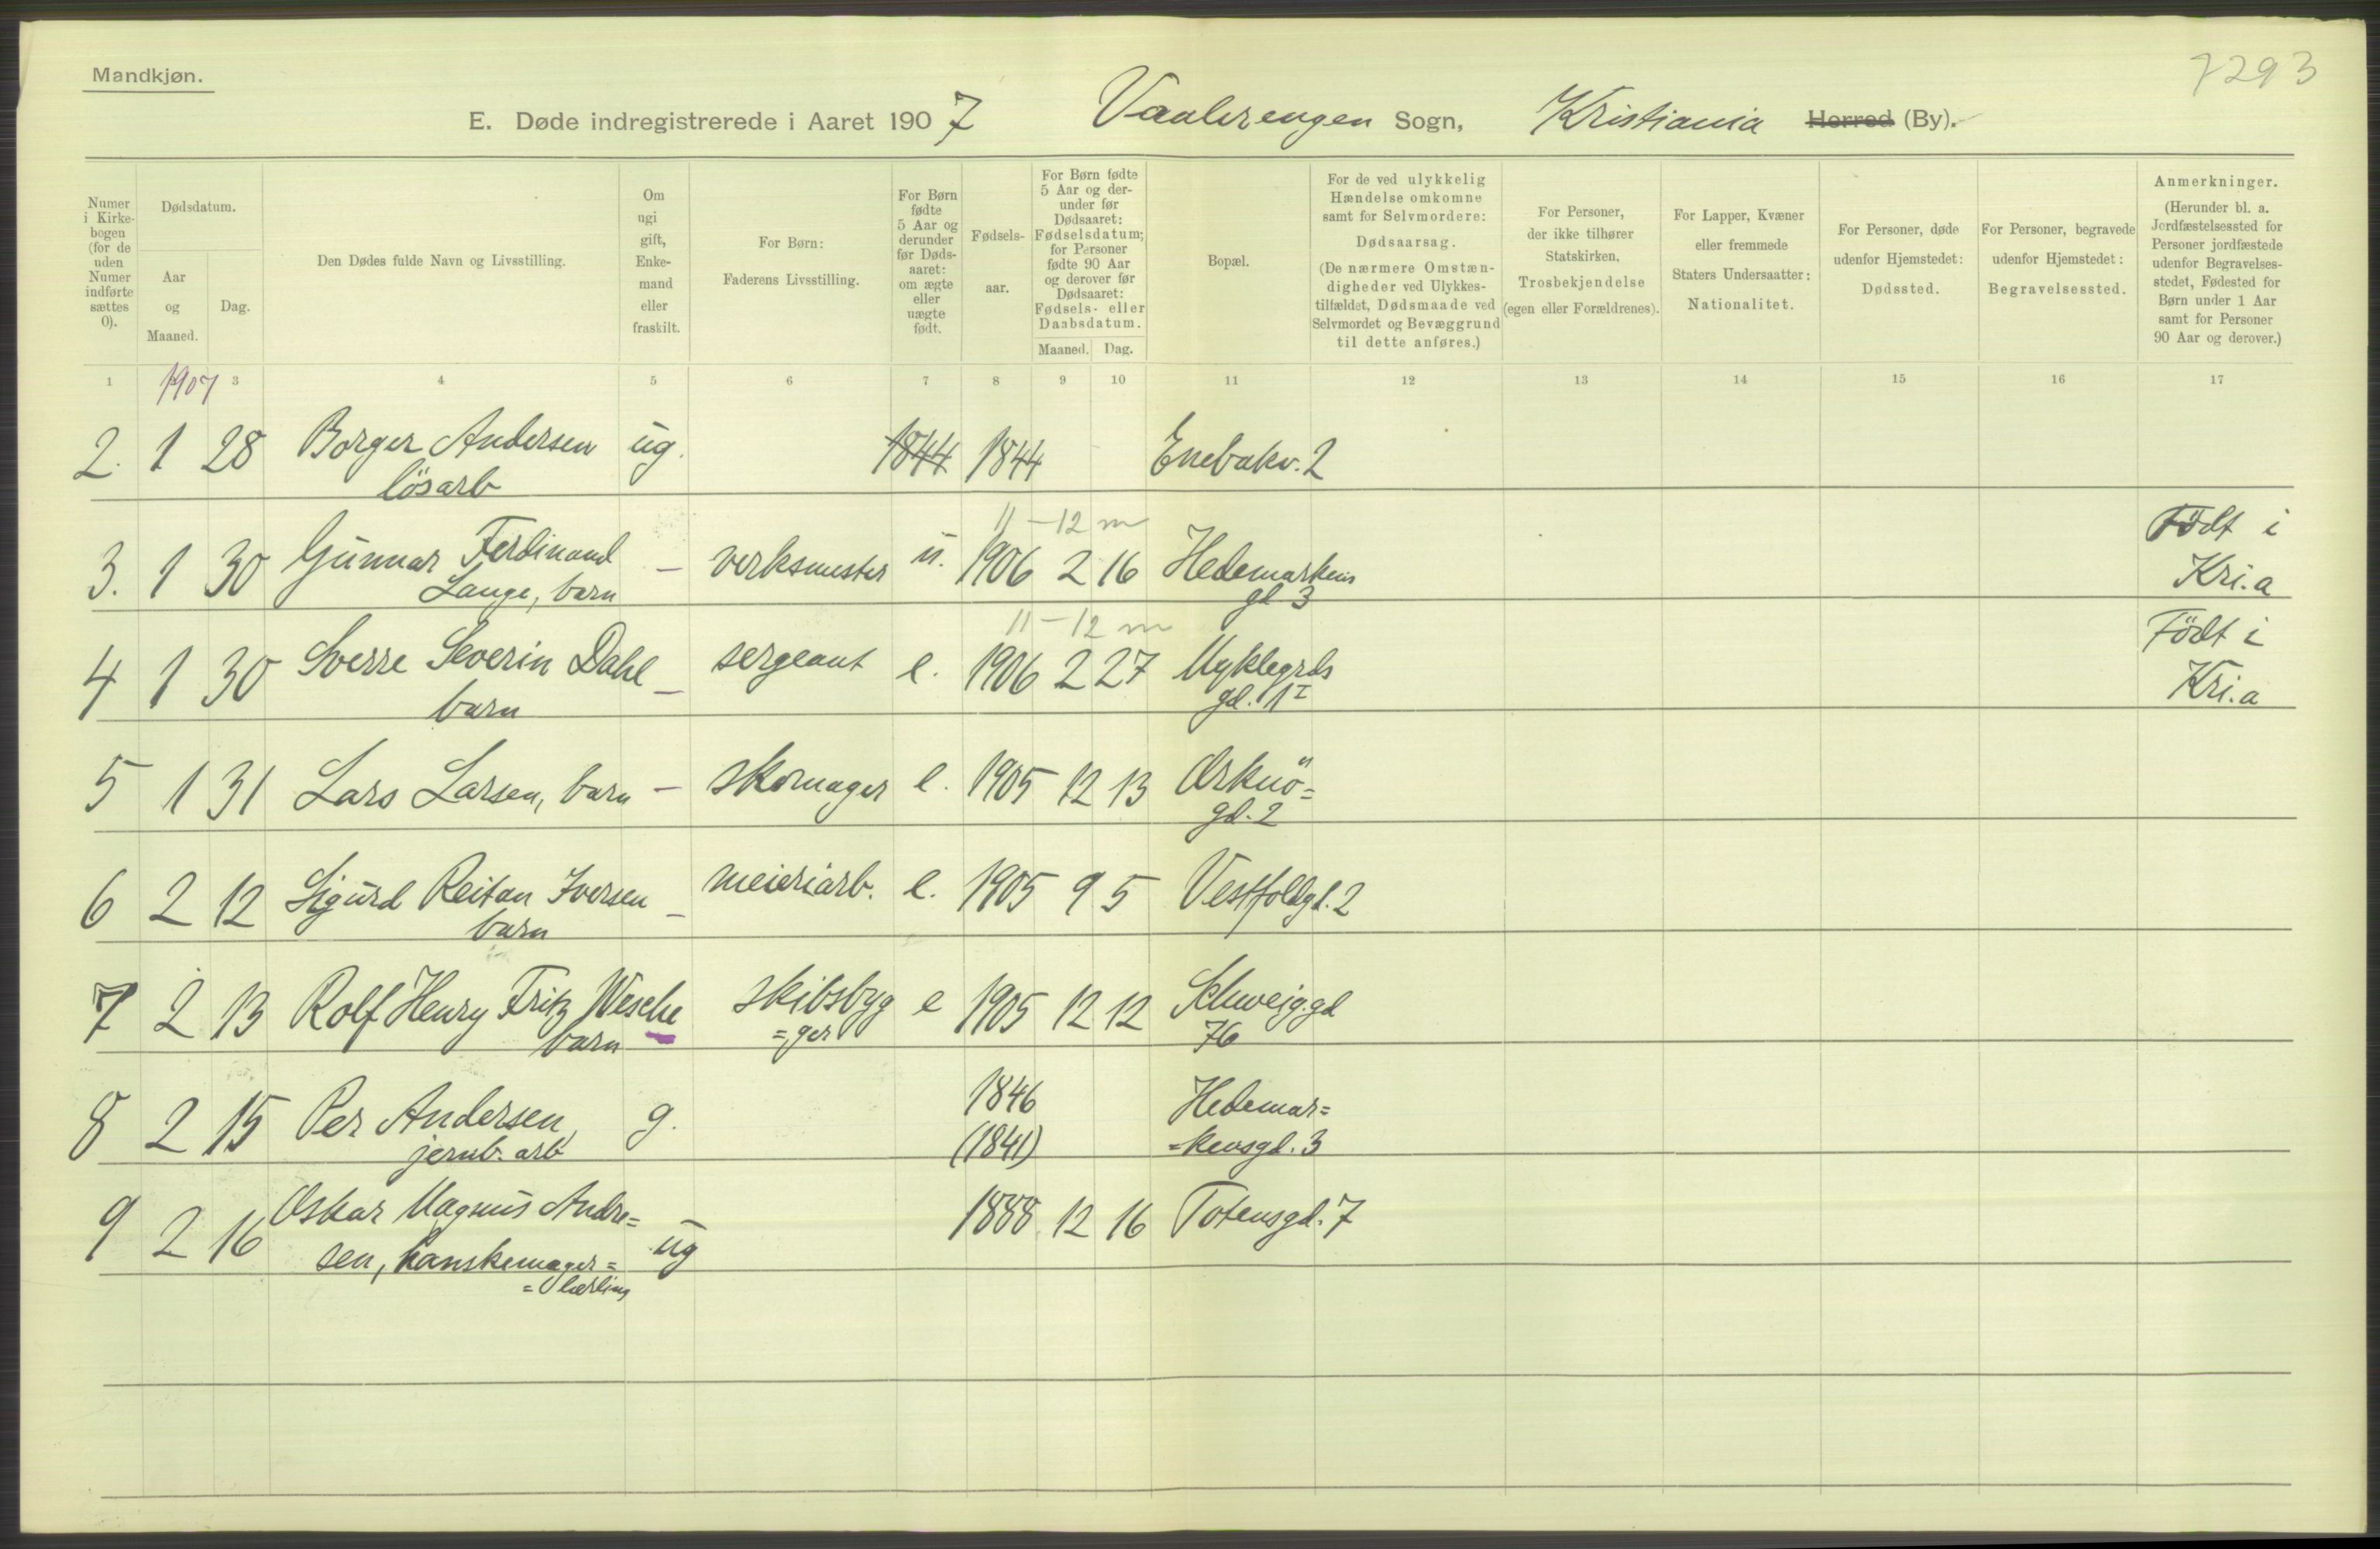 Mandkjøn.
7293
E. Døde indregistrerede i Aaret 1907 Vaalerengen Sogn, Kristiania Herred (By).
Numer i Kirkebogen (for de uden Numer indførte sættes 0).
Dødsdatum.
Aar og Maaned.
Dag.
Den Dødes fulde Navn og Livsstilling.
Om ugi gift, Enkemand eller fraskilt.
For Børn: Faderens Livsstilling.
For Børn fødte 5 Aar og derunder før Dødsaaret: om ægte eller uægte født.
Fødselsaar.
For Børn fødte 5 Aar og derunder før Dødsaaret: Fødselsdatum; for Personer fødte 90 Aar og derover før Dødsaaret: Fødsels- eller Daabsdatum.
Maaned. Dag.
Bopæl.
For de ved ulykkelig Hændelse omkomne samt for Selvmordere: Dødsaarsag. (De nærmere Omstændigheder ved Ulykkestilfældet, Dødsmaade ved Selvmordet og Bevæggrund til dette anføres.)
For Personer, der ikke tilhører Statskirken, Trosbekjendelse (egen eller Forældrenes).
For Lapper, Kvæner eller fremmede Staters Undersaatter: Nationalitet.
For Personer, døde udenfor Hjemstedet: Dødssted.
For Personer, begravede udenfor Hjemstedet: Begravelsessted.
Anmerkninger. (Herunder bl. a. Jordfæstelsessted for Personer jordfæstede udenfor Begravelsesstedet, Fødested for Børn under 1 Aar samt for Personer 90 Aar og derover.)
1 1907 3 4 5 6 7 8 9 10 11 12 13 14 15 16 17
2. 1 28 Borger Andersen ug. 1844 1844 Enebakv. 2
lösarb
11-12 m
3. 1 30 Gunnar Ferdinand - verksmester u. 1906 2 16 Hedemarkens Födt i
Lange, barn gd 3 Kri.a
11-12 m
4 1 30 Sverre Severin Dahl - sergeant e. 1906 2 27 Myklegrds Födt i
barn gd. 1 I Kri.a
5 1 31 Lars Larsen, barn - skomager e. 1905 12 13 Orknö=
gd. 2
6 2 12 Sigurd Reitan Iversen - meieriarb. e. 1905 9 5 Vestfoldgd. 2
barn
7 2 13 Rolf Henry Fritz Wesche skibsbyg e 1905 12 12 Schweig.gd
barn =ger 76
8 2 15 Per Andersen, g. 1846 Hedemar=
jernb. arb (1841) =kensgd. 3
9 2 16 Oskar Magnus Andre= ug 1888 12 16 Totensgd. 7
sen, hanskemager=
=lærling